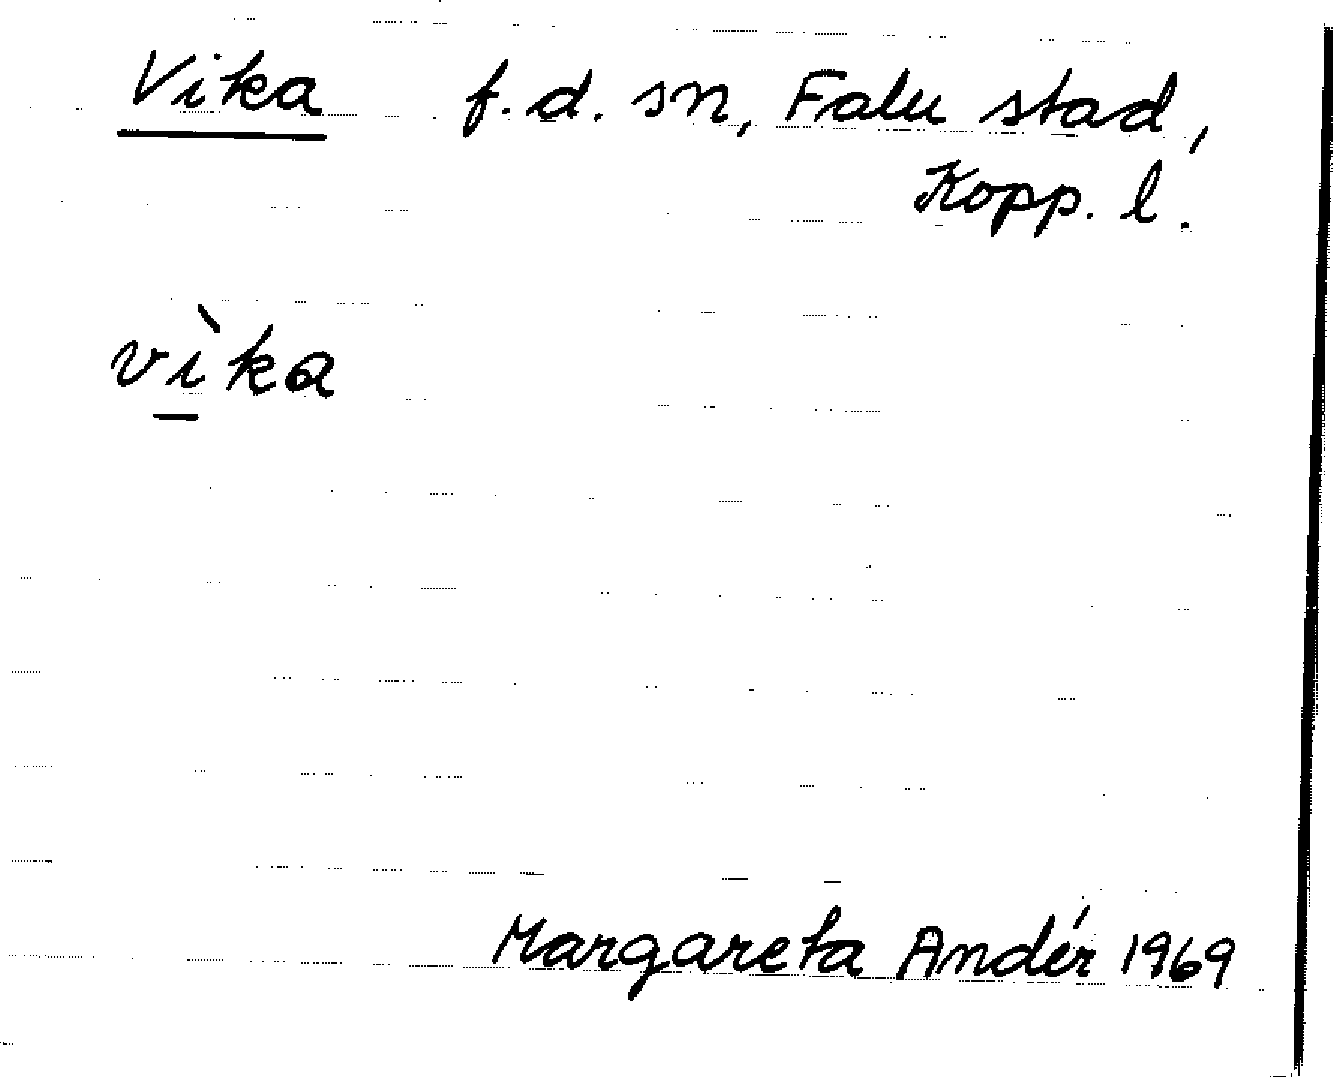 Vika f.d. sn, Falu stad,
Kopp. l.
vìka
Margareta Andér 1969